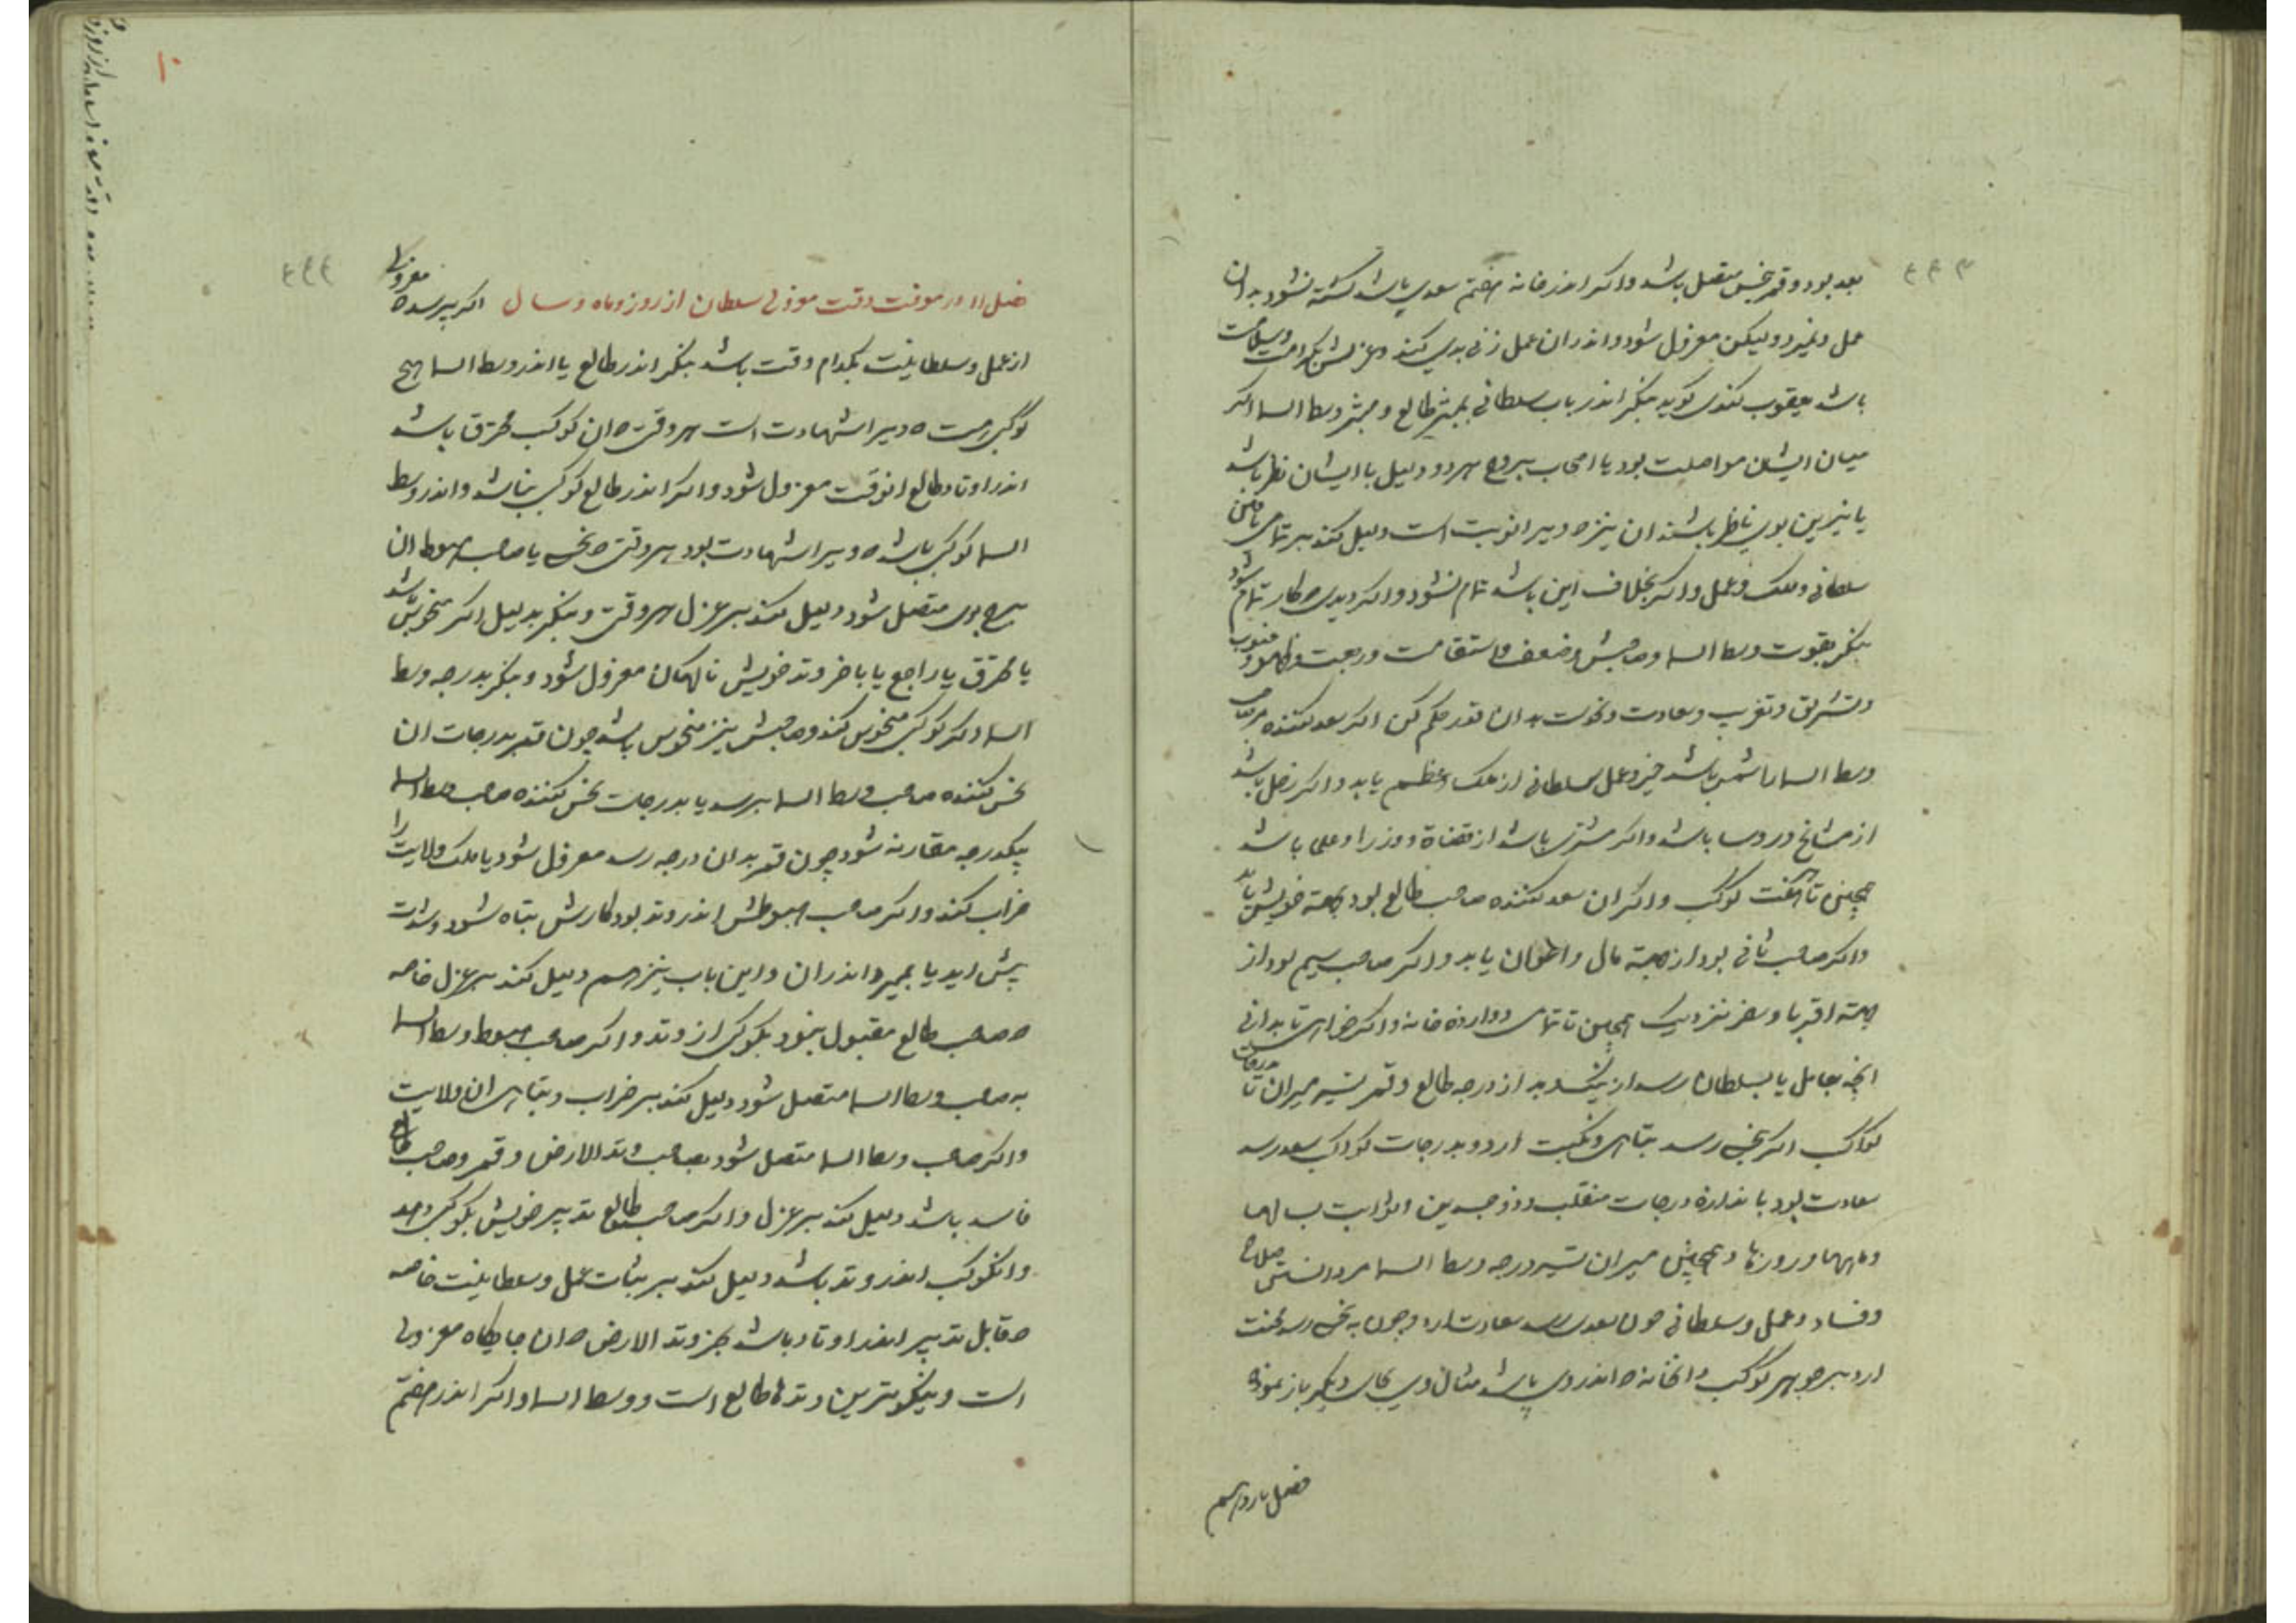 بعد بود و قمر بنحس متصل باشد و اکر اندر خانه هفتم سعدی باشد کشته نشود بدان
عمل و نمیرد ولیکن معزول شود و اندر ان عمل زنی بدی کند و عزلش بکرامت و سلامت
باشد یعقوب کندی کوید بنکر اندر باب سلطانی بمبتز طالع و مبتز وسط السما اکر
میان ایشان مواصلت بود یا اصحاب بروج هر دو دلیل با ایشان نظر باشد
یا نیرین بوی ناظر باشند ان نیز که ویرا نوبت است دلیل کند بر تمامی یافتن
سلطانی و ملک و عمل و اکر بخلاف این باشد تمام نشود و اکر دیدی که کار تمام شود
بنکر بقوت وسط السما و صاحبش و ضعف و استقامت و رجعت و ظهور
و تشریق و تغریب و سعادت و نحوست بدان قدر حکم کن اکر سعد کننده مر صاحب
وسط السما را شمس باشد خیر و عمل سلطانی از ملک اعظم یابد و اکر زحل باشد
از مشایخ و روسا باشد و اکر مشتری باشد از قضاة و وزرا و علما باشد
همچنین تا هفت کوکب و اکر ان سعد کننده صاحب طالع بود بجهة خویش یابد
و اکر صاحب ثانی بود از جهة مال و اعوان یابد و اکر صاحب سیم بود از
جهة اقربا و سفر نزدیک همچنین تا تمامی دوازده خانه و اکر خواهی تا بدانی
انچه بعامل یا بسلطان رسد از نیک و بد از درجه طالع و قمر تسیر میران تا درجات
کواکب اکر بنحس رسد تباهی و نکبت ارد و بدرجات کواکب سعد رسد
سعادت بود باندازه درجات منقلب و ذوجسدین و ثوابت بسالها
و ماهها و روزها و همچنین میران تسیر درجه وسط السما مر دانستن صلاح
و فساد و عمل و سلطانی چون بسعدی رسد سعادت ارد و چون به نحس رسد محنت
ارد بر جوهر کوکب و انخانه که اندر وی باشد مثال وی بجای دیکر باز نمودم
فصل یازدهم
فصل ۱۱ در موقت وقت معزولی سلطان از روز و ماه و سال اکر پرسد که معزولی
از عمل و سلطانیت بکدام وقت باشد بنکر اندر طالع یا اندر وسط السما هیچ
کوکبی هست که ویرا شهادت است هر وقتی که ان کوکب محترق باشد
اندر اوتاد طالع انوقت معزول شود و اکر اندر طالع کوکبی نباشد و اندر وسط
السما کوکبی باشد که ویرا شهادت بود هر وقتی که نحس یا صاحب هبوط ان
برج بوی متصل شود دلیل کند بر عزل هر وقتی و بنکر بدلیل اکر منحوس باشد
یا محترق یا راجع یا باخر وتد خویش ناکهان معزول شود و بنکر بدرجه وسط
السما و اکر کوکبی منحوس کند و صاحبش نیز منحوس باشد چون قمر بدرجات ان
نحس کننده صاحب وسط السما برسد یا بدرجات نحس کننده صاحب وسط السما
بیکدرجه مقارنه شود چون قمر بدان درجه رسد معزول شود یا ملک ولایت را
خراب کند و اکر صاحب هبوطش اندر وتد بود کارش تباه شود و شدت
پیش اید یا بمیرد اندر ان و این باب نیز هم دلیل کند بر عزل خاصه
که صاحب طالع مقبول نبود بکوکبی از وتد و اکر صاحب هبوط وسط السما
به صاحب وسط السما متصل شود دلیل کند بر خراب و تباهی ان ولایت
و اکر صاحب وسط السما متصل شود بصاحب وتد الارض و قمر و صاحب طالع
فاسد باشد دلیل کند بر عزل و اکر صاحب طالع تدبیر خویش بکوکبی دهد
و انکوکب اندر وتد باشد دلیل کند بر ثبات عمل و سلطانیت خاصه
که قابل تدبیر اندر اوتاد باشد بجز وتد الارض که ان جایکاه معزولی
است و نیکوترین وتدها طالع است و وسط السما و اکر اندر هفتم